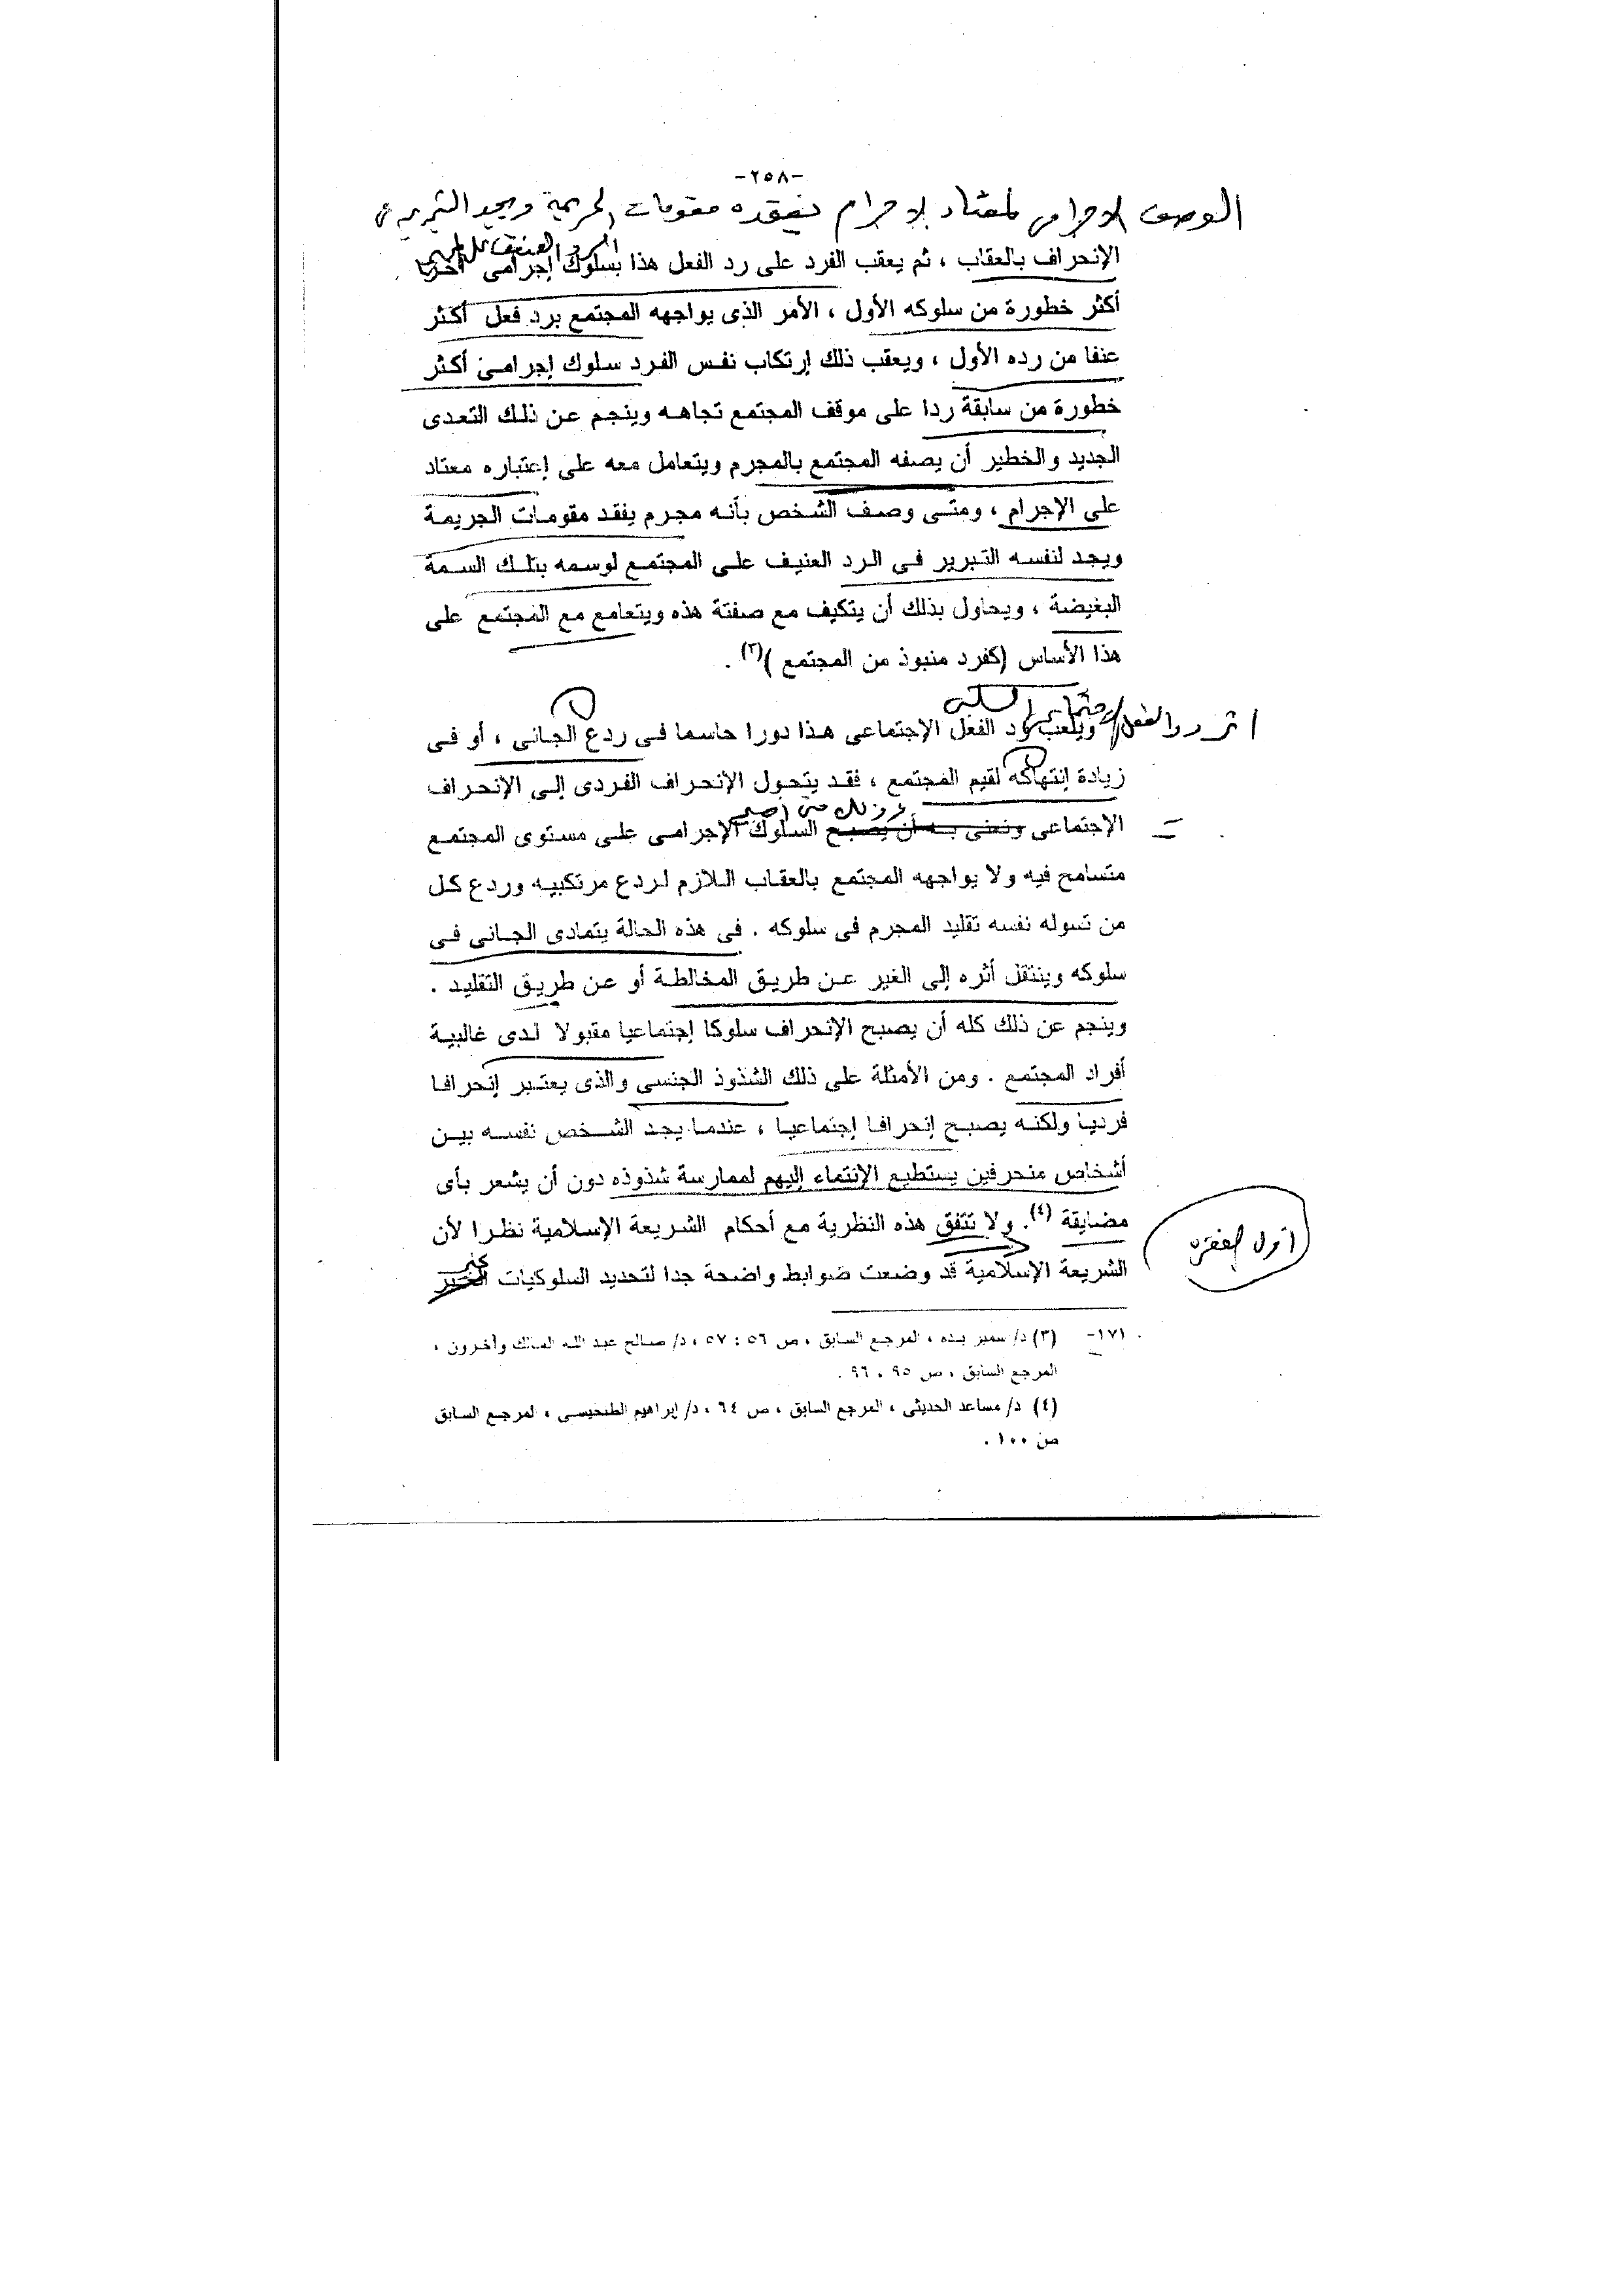 -٢٥٨-
الوصف الاجرامى لمعتاد الاجرام يفقده مقومات الجريمة ويجد التبرير فى
الرد العنيف على المجتمع
الإنحراف بالعقاب ، ثم يعقب الفرد على رد الفعل هذا بسلوك إجرامى أخر
أكثر خطورة من سلوكه الأول ، الأمر الذى يواجهه المجتمع برد فعل أكثر
عنفا من رده الأول ، ويعقب ذلك إرتكاب نفس الفرد سلوك إجرامى أكثر
خطورة من سابقة ردا على موقف المجتمع تجاهه وينجم عن ذلك التعدى
الجديد والخطير أن يصفه المجتمع بالمجرم ويتعامل معه على إعتباره معتاد
على الإجرام ، ومتى وصف الشخص بأنه مجرم يفقد مقومات الجريمة
ويجد لنفسه التبرير فى الرد العنيف على المجتمع لوسمه بتلك السمة
البغيضة ، ويحاول بذلك أن يتكيف مع صفتة هذه ويتعامع مع المجتمع على
هذا الأساس (كفرد منبوذ من المجتمع )(٣) .
اثر رد الفعل الاجتماعى
ويلعب رد الفعل الإجتماعى هذا دورا حاسما فى ردع الجانى ، أو فى
زيادة إنتهاكه لقيم المجتمع ، فقد يتحول الإنحراف الفردى إلى الإنحراف
الإجتماعى ونعنى به أن يصبح السلوك الإجرامى على مستوى المجتمع
متسامح فيه ولا يواجهه المجتمع بالعقاب اللازم لردع مرتكبيه وردع كل
من تسوله نفسه تقليد المجرم فى سلوكه . فى هذه الحالة يتمادى الجانى فى
سلوكه وينتقل أثره إلى الغير عن طريق المخالطة أو عن طريق التقليد .
وينجم عن ذلك كله أن يصبح الإنحراف سلوكا إجتماعيا مقبولا لدى غالبية
أفراد المجتمع . ومن الأمثلة على ذلك الشذوذ الجنسى والذى يعتبر إنحرافا
فرديا ولكنه يصبح إنحرافا إجتماعيا ، عندما يجد الشخص نفسه بين
أشخاص منحرفين يستطيع الإنتماء إليهم لممارسة شذوذه دون أن يشعر بأى
مضايقة (٤). ولا تتفق هذه النظرية مع أحكام الشريعة الإسلامية نظرا لأن
اول الفقره
الشريعة الإسلامية قد وضعت ضوابط واضحة جدا لتحديد السلوكيات
١٧١- (٣) د/ سمير بده ، المرجع السابق ، ص ٥٦ : ٥٧ ، د/ صالح عبد الله المالك وأخرون ،
المرجع السابق ، ص ٩٥ ، ٩٦ .
(٤) د/ مساعد الحديثى ، المرجع السابق ، ص ٦٤ ، د/ إبراهيم الطخيسى ، المرجع السابق
ص ١٠٠ .